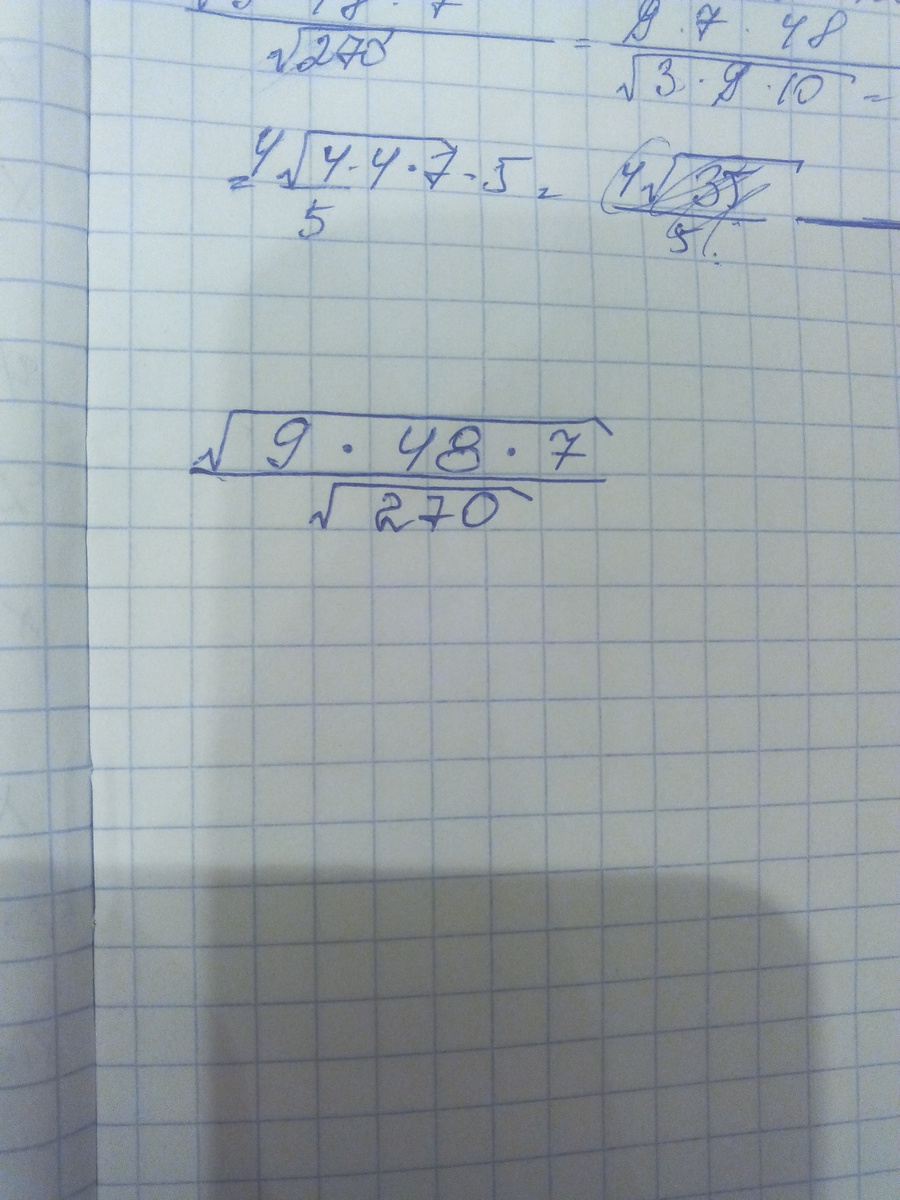 √270 = 9 · 7 · 48
√3 · 9 · 10 =
= 4√4·4·7·5 = 4√35
5 5
√9 · 48 · 7
√270